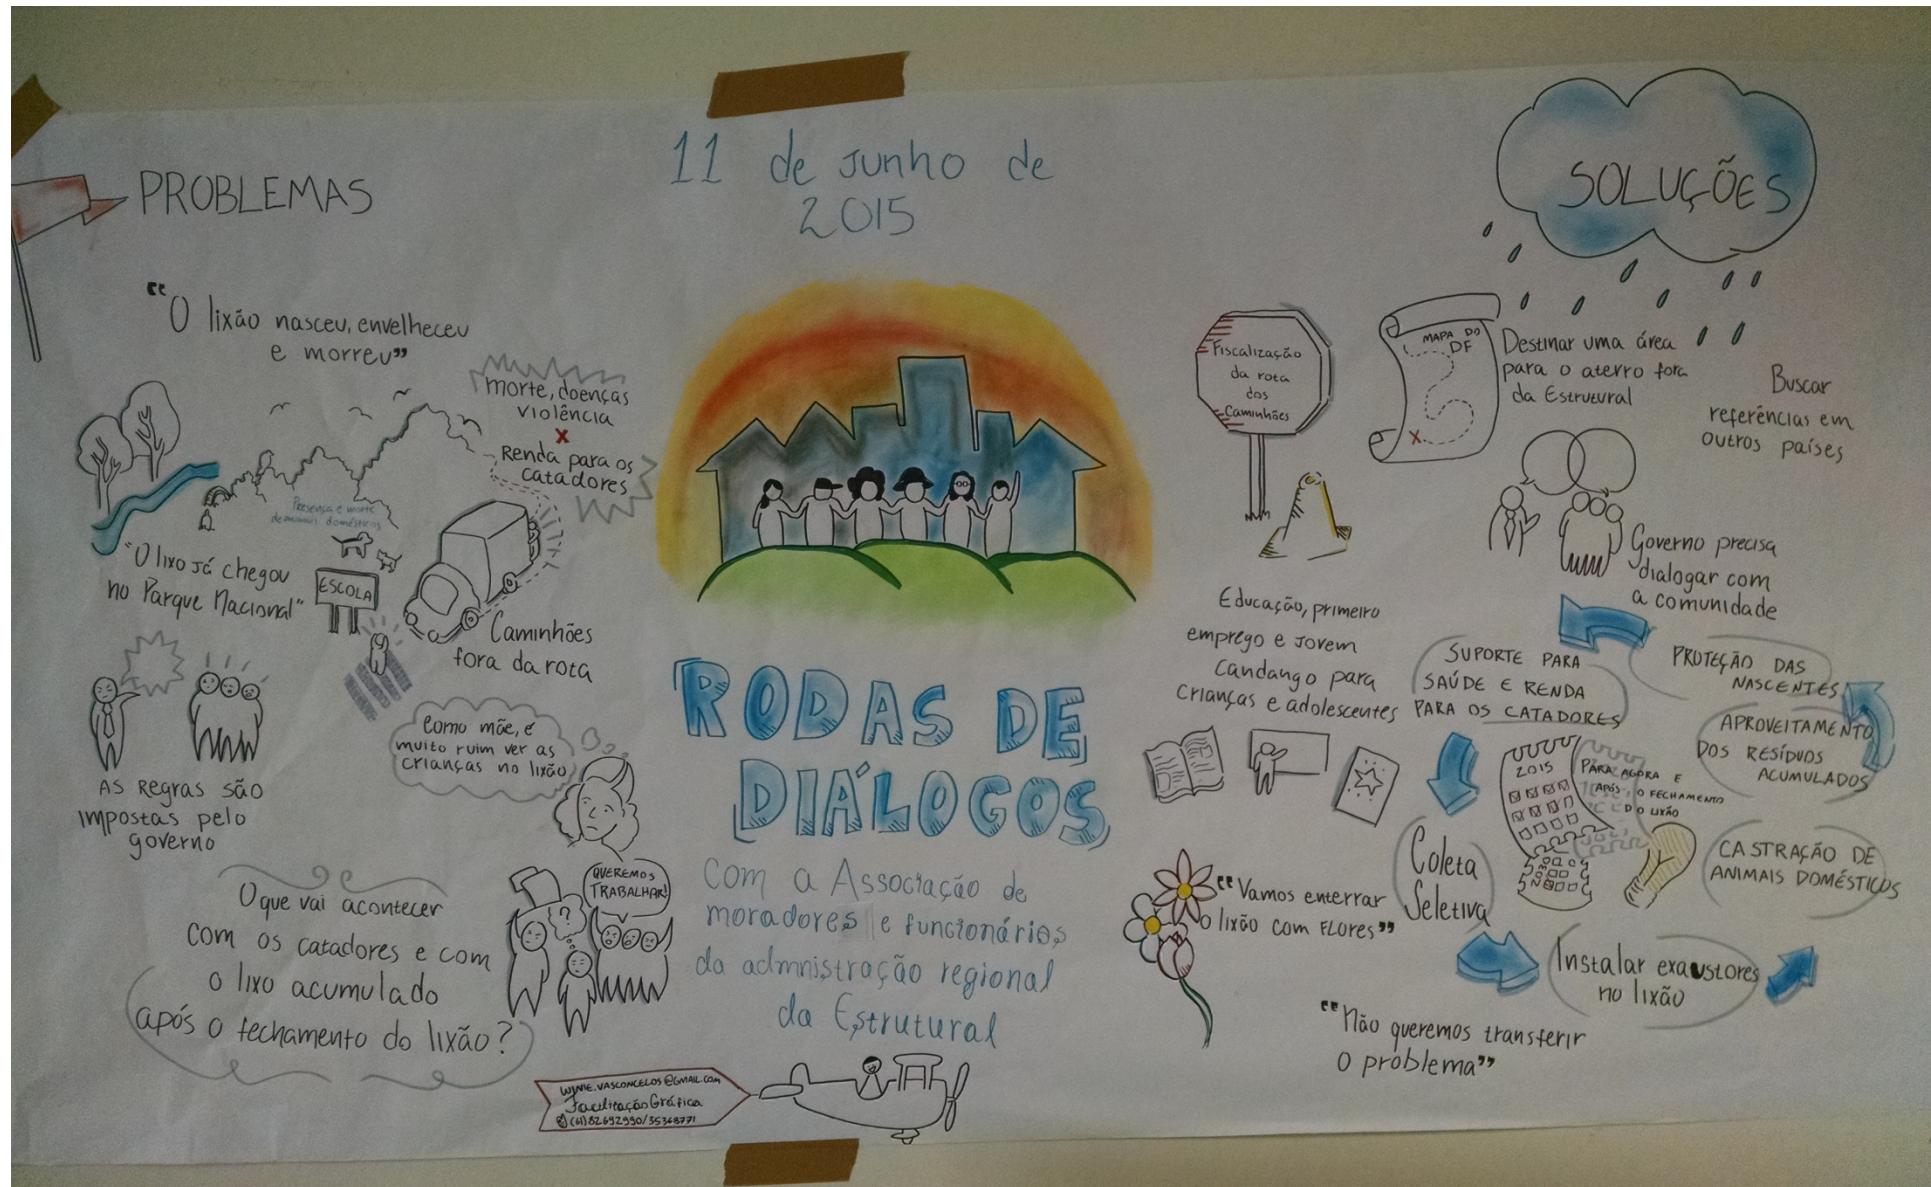 PROBLEMAS
"O lixão nasceu, envelheceu
e morreu"
morte, doenças
violência
X
Renda para os
catadores
Presença e morte
de animais domésticos
"O lixo já chegou
no Parque Nacional"
ESCOLA
Caminhões
fora da rota
AS REGRAS SÃO
IMPOSTAS PELO
governo
Como mãe, é
muito ruim ver as
crianças no lixão
O que vai acontecer
com os catadores e com
o lixo acumulado
após o fechamento do lixão?
?
QUEREMOS
TRABALHAR!
11 de Junho de
2015
RODAS DE
DIÁLOGOS
Com a Associação de
moradores e funcionários
da admnistração regional
da Estrutural
WYNIE.VASCONCELOS@GMAIL.COM
Facilitação Gráfica
(61)82692990/35368771
SOLUÇÕES
Fiscalização
da rota
dos
Caminhões
MAPA DO
DF
X
Destinar uma área
para o aterro fora
da Estrutural
Buscar
referências em
outros países
Governo precisa
dialogar com
a comunidade
Educação, primeiro
emprego e Jovem
Candango para
crianças e adolescentes
SUPORTE PARA
SAÚDE E RENDA
PARA OS CATADORES
PROTEÇÃO DAS
NASCENTES
APROVEITAMENTO
DOS RESÍDUOS
ACUMULADOS
2015
PARA AGORA E
APÓS O FECHAMENTO
DO LIXÃO
CASTRAÇÃO DE
ANIMAIS DOMÉSTICOS
Coleta
Seletiva
Instalar exaustores
no lixão
"Vamos enterrar
o lixão com FLORES"
"Não queremos transferir
o problema"